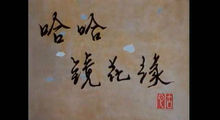 哈哈
鏡花緣